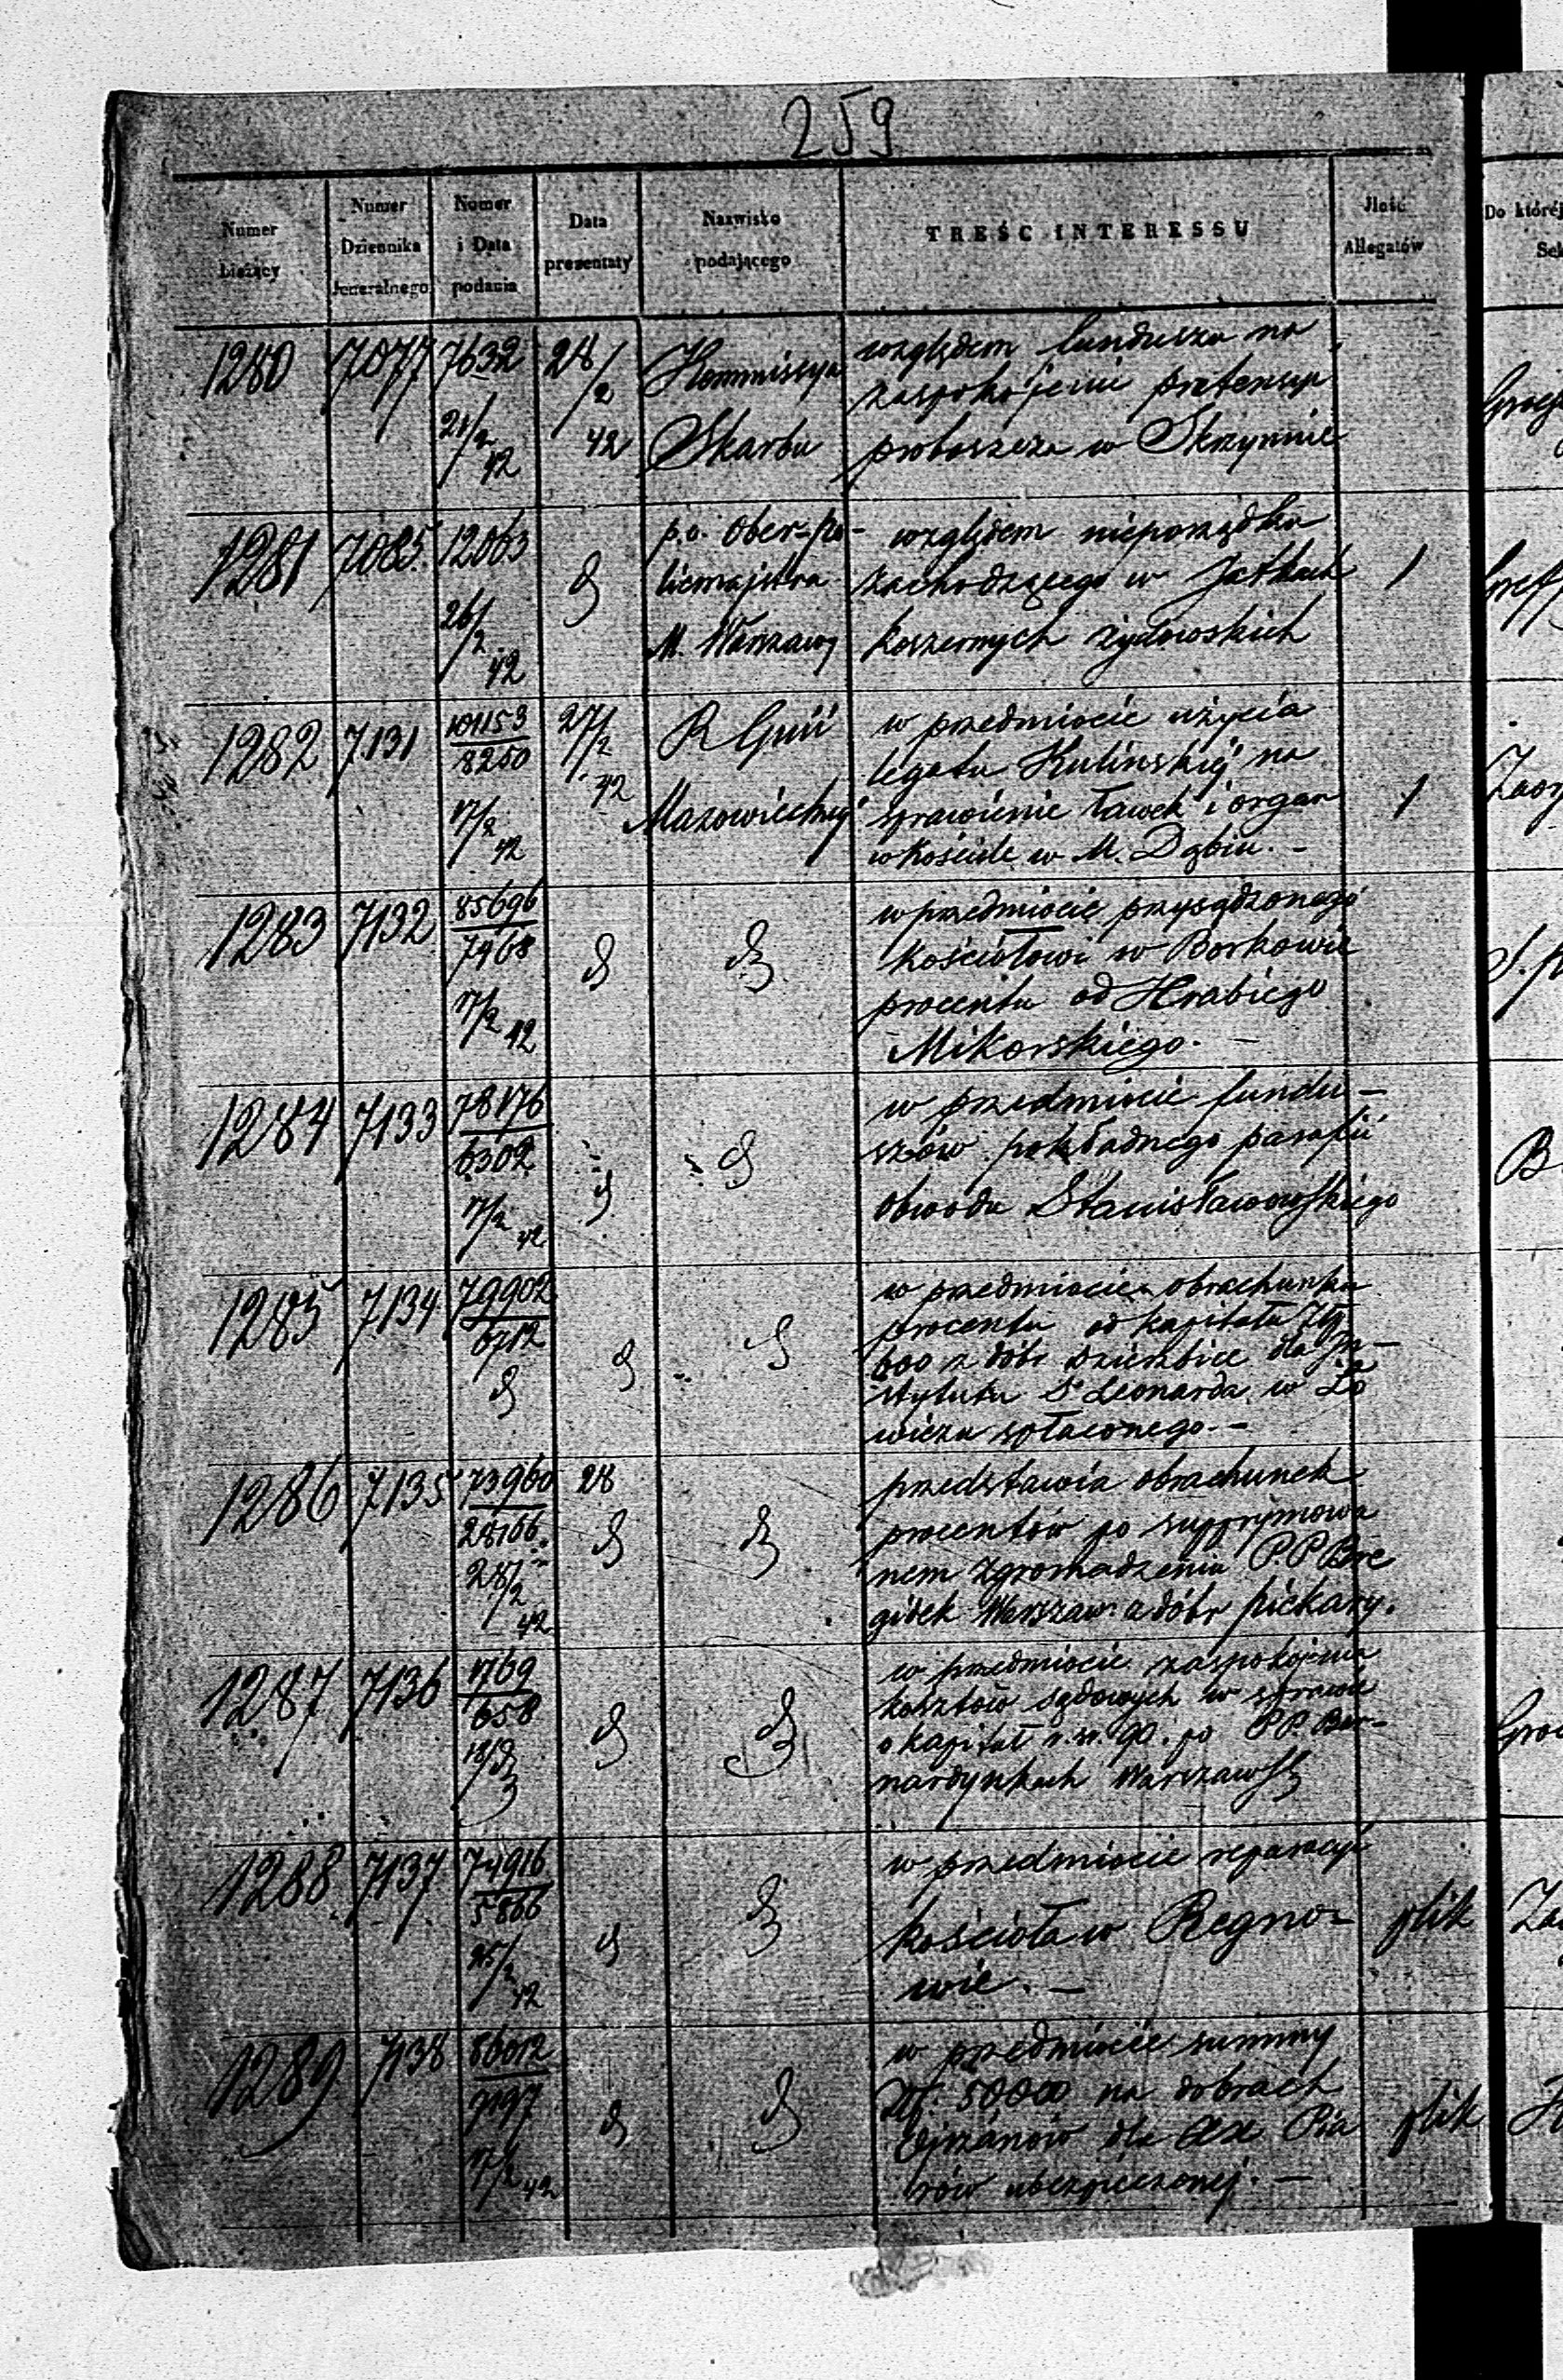 259
Numer bieżący | Numer Dziennika Jeneralnego | Numer i Data podania | Data prezentaty | Nazwisko podającego | TREŚĆ INTERESSU | Jlość Allegatów | Do której
1280 | 7077 | 7632 21/2 42 | 28/2 42 | Kommissya Skarbu
względem funduszu na
zaspokojenie pretensyi
proboszcza w Skrzynnie
1281 | 7085 | 12063 26/2 42 | d | p.o. Ober-Po-
licmajstra
M. Warszawy
względem nieporządku
zachodzącego w Jatkach | 1
koszernych żydowskich
1282 | 7131 | 101153 / 8250 17/2 42 | 27/2 42 | R Gub
Mazowieckiej
w przedmiocie użycia
legatu Kulinskiej na
sprawienie ławek i organ | 1
w kościele w M. Dąbiu. -
1283 | 7132 | 85696 / 7468 17/2 42 | d | d
w przedmiocie przysądzonego
kościołowi w Borkowie
procentu od Hrabiego
Mikorskiego. -
1284 | 7133 | 78176 / 6302 17/2 42 | d | d
w przedmiocie fundu-
szów pokładnego parafii
obwodu Stanisławowskiego
1285 | 7134 | 79902 / 6712 d | d | d
w przedmiocie obrachunku
procentu od kapitału Złp
600 z dóbr Dzierzbice dla In-
stytutu S. Leonarda w Ło
wiczu spłaconego. -
1286 | 7135 | 73960 / 28166 28/2 42 | 28 d | d
przedstawia obrachunek
procentów po supprymowa
nem Zgromadzeniu P.P. Bre
gidek Warszaw: a dóbr Piekary.
1287 | 7136 | 1769 / 658 18/d | d | d
w przedmiocie zaspokojenia
kosztów sądowych w sprawie
o kapitał r.sr. 90. po P.P. Ber-
nardynkach Warszaws
1288 | 7137 | 74916 / 5866 25/2 42 | d | d
w przedmiocie reparacyi
kościoła w Regno- | plik
wie. -
1289 | 7138 | 86012 / 7197 17/2 42 | d | d
w przedmiocie summy
Złp. 50000 na dobrach
dla XX Pia | plik
rów ubezpieczonej. -